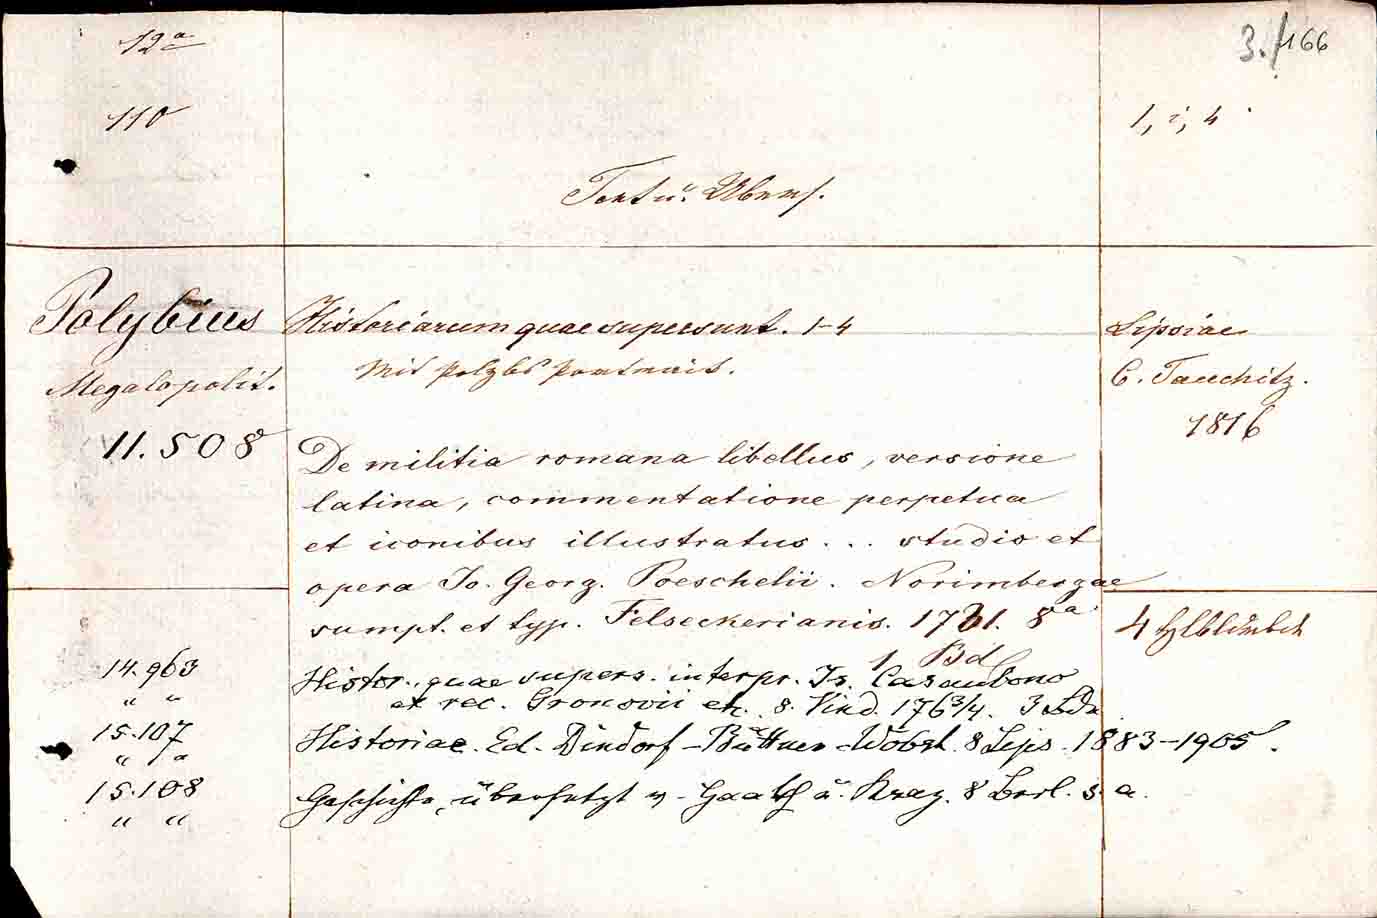 12a
3./166
110
1, 2, 4
Text u. Übers.
Polybius Historiarum quae supersunt. 1-4 Lipsiae
Megalopolit. Mit Polybs Portrait. C. Tauchitz.
1816
11.508
De militia romana libellus, versione
latina, commentatione perpetua
et iconibus illustratus... studio et
opera Jo. Georg. Poeschelii. Norimbergae
sumpt. et typ. Felseckerianis. 1731. 8a
4 Hlbldrbde
1 Bd
14.963 Histor. quae supers. interpr. Is. Casaubono
" " ex rec. Gronovii etc. 8. Vind. 1763/4. 3 Bde
15.107 Historiae. Ed. Dindorf-Büttner-Wobst. 8 Lips. 1883-1905.
" "
15.108 Geschichte, übersetzt v. Haakh u. Kraz. 8 Berl. s. a.
" "